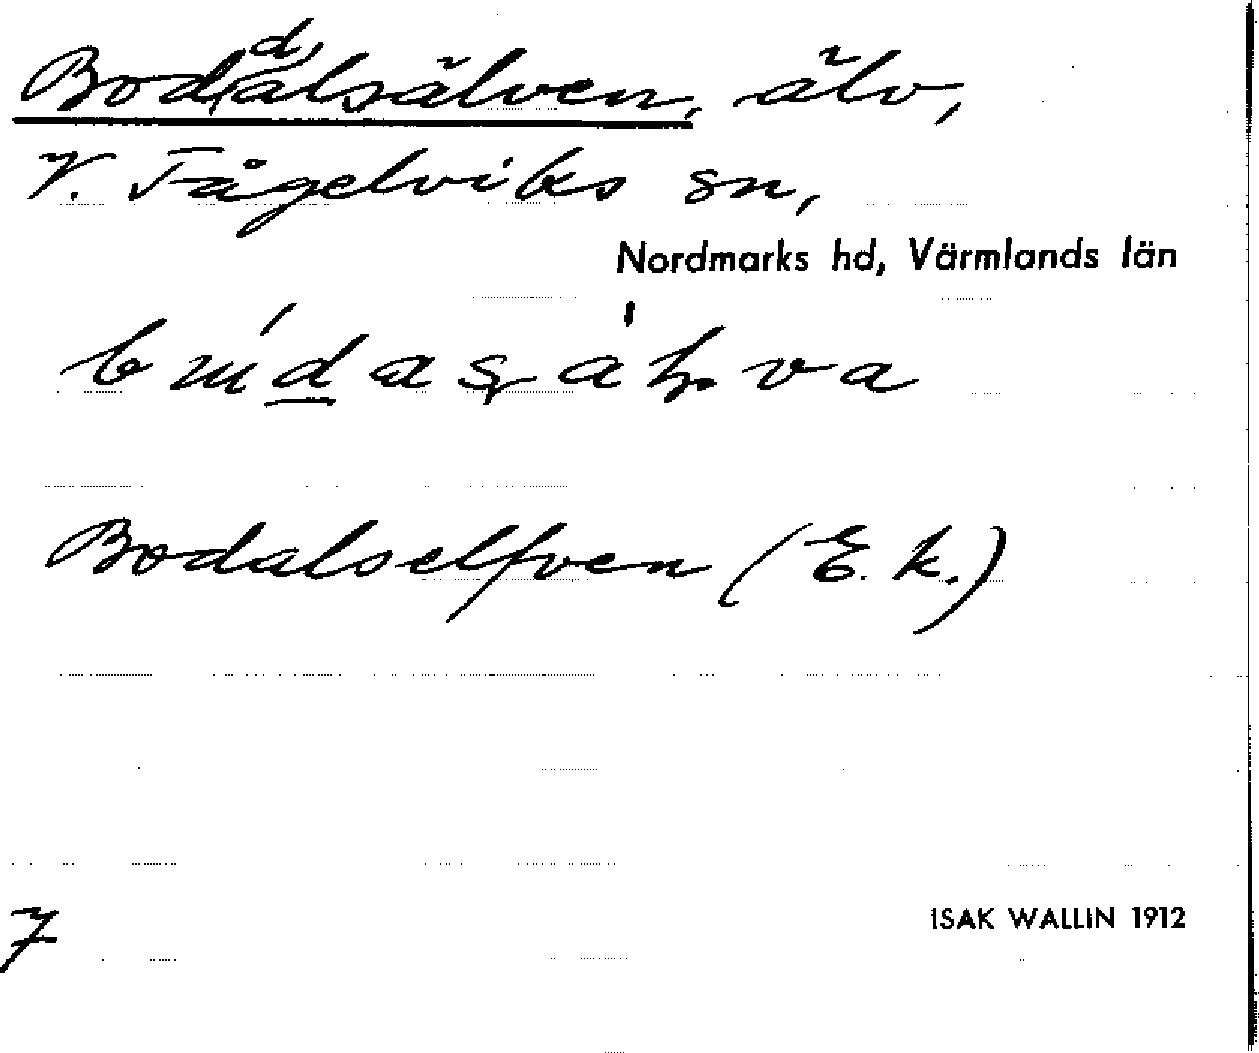 Boddalsälven, älv,
V. Fågelviks sn,
Nordmarks hd, Värmlands län
Bodalselfven (E. k.)
7
ISAK WALLIN 1912